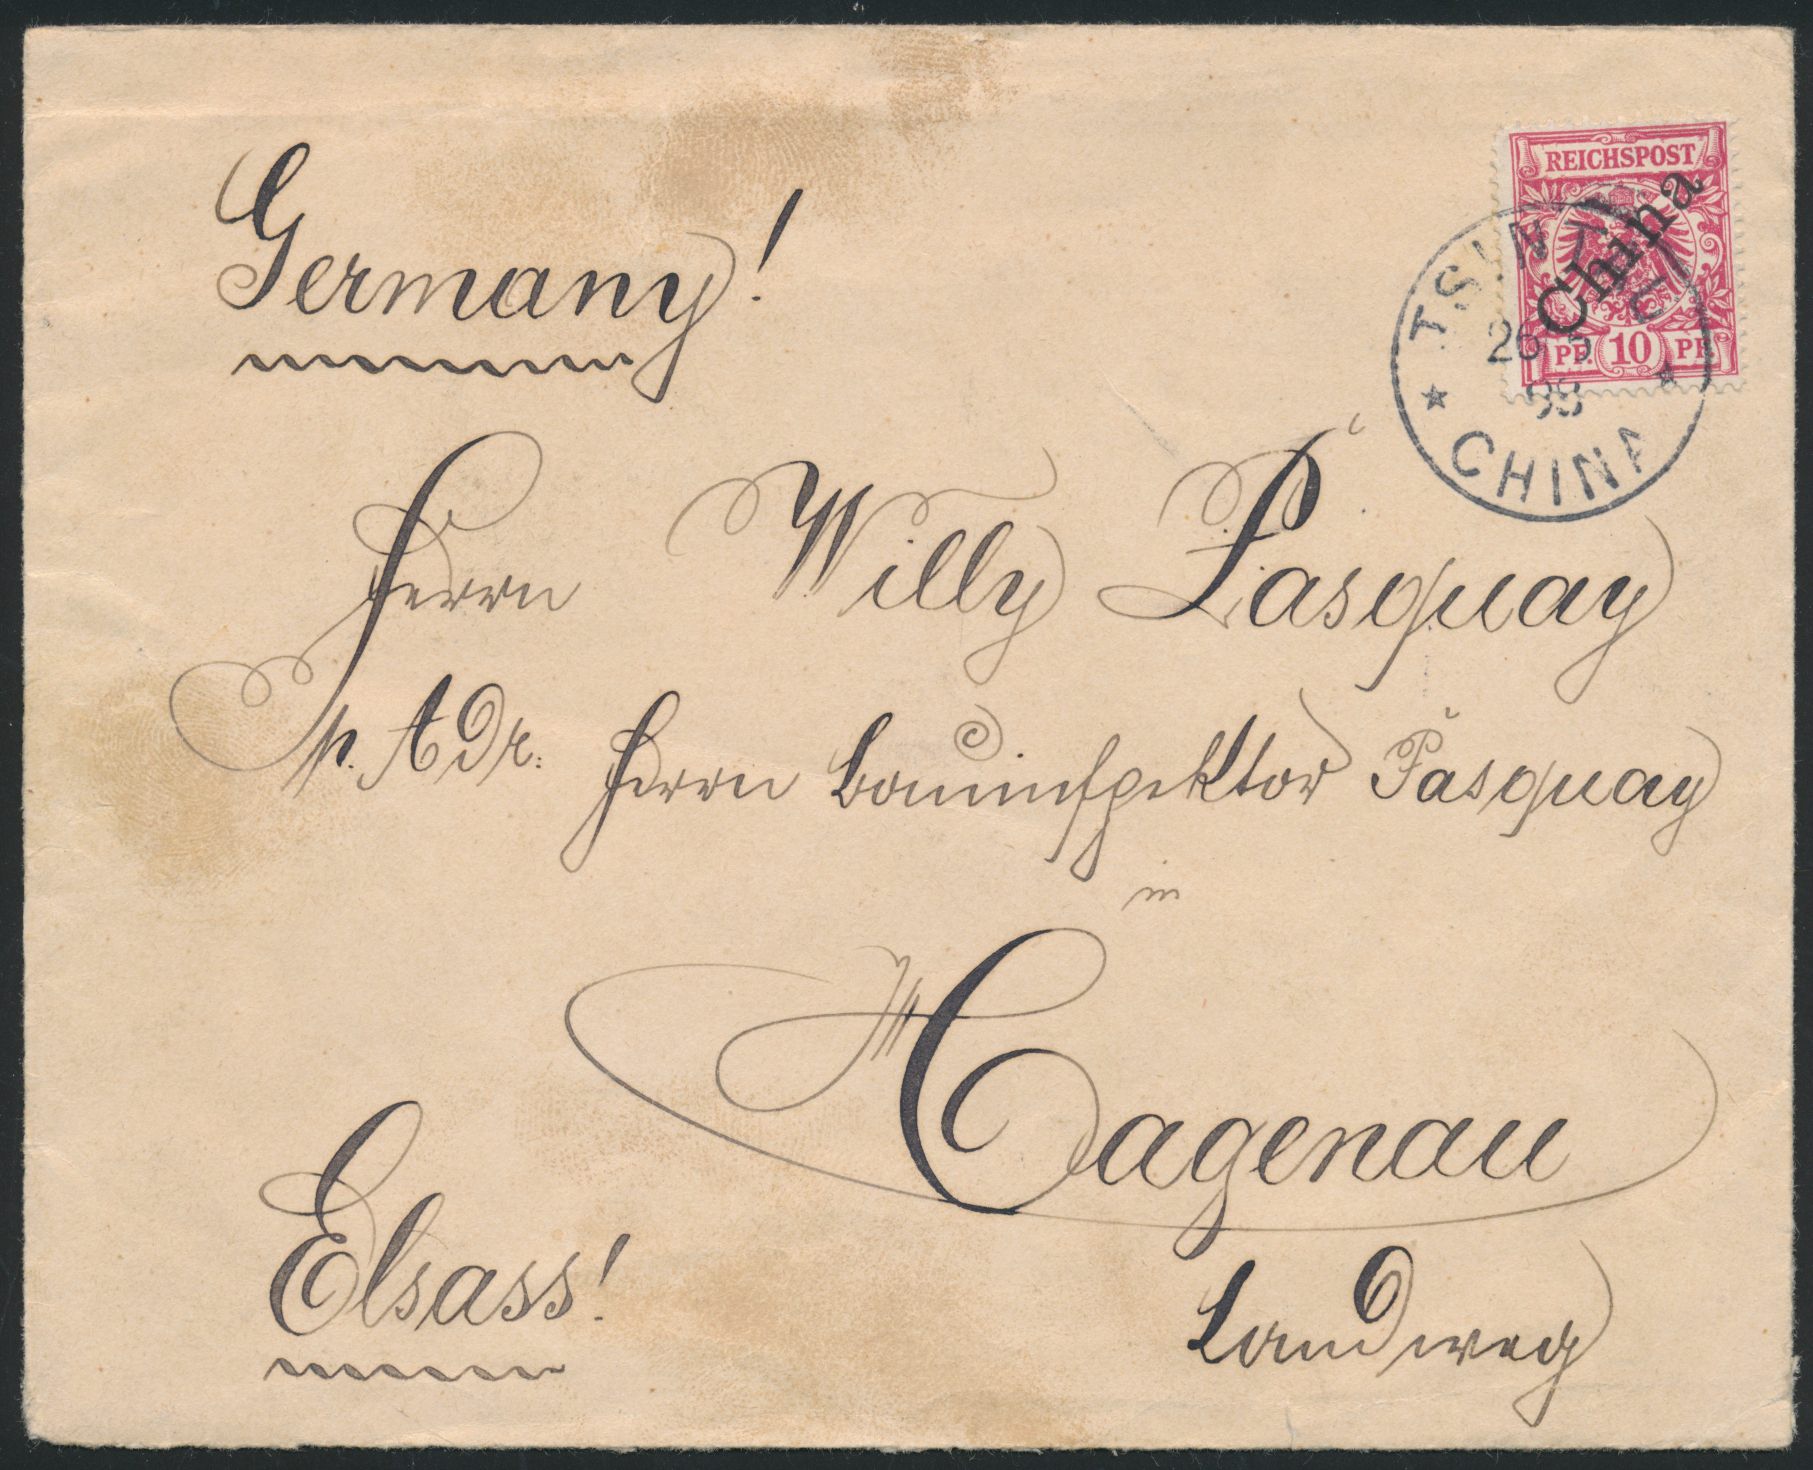 Germany!
REICHSPOST
China
PF. 10 PF.
TSINTAU
26
98
CHINA
Herrn Willy Pasquay
p. Adr. Herrn Bauinspektor Pasquay
in
Hagenau
Elsass!
Landweg